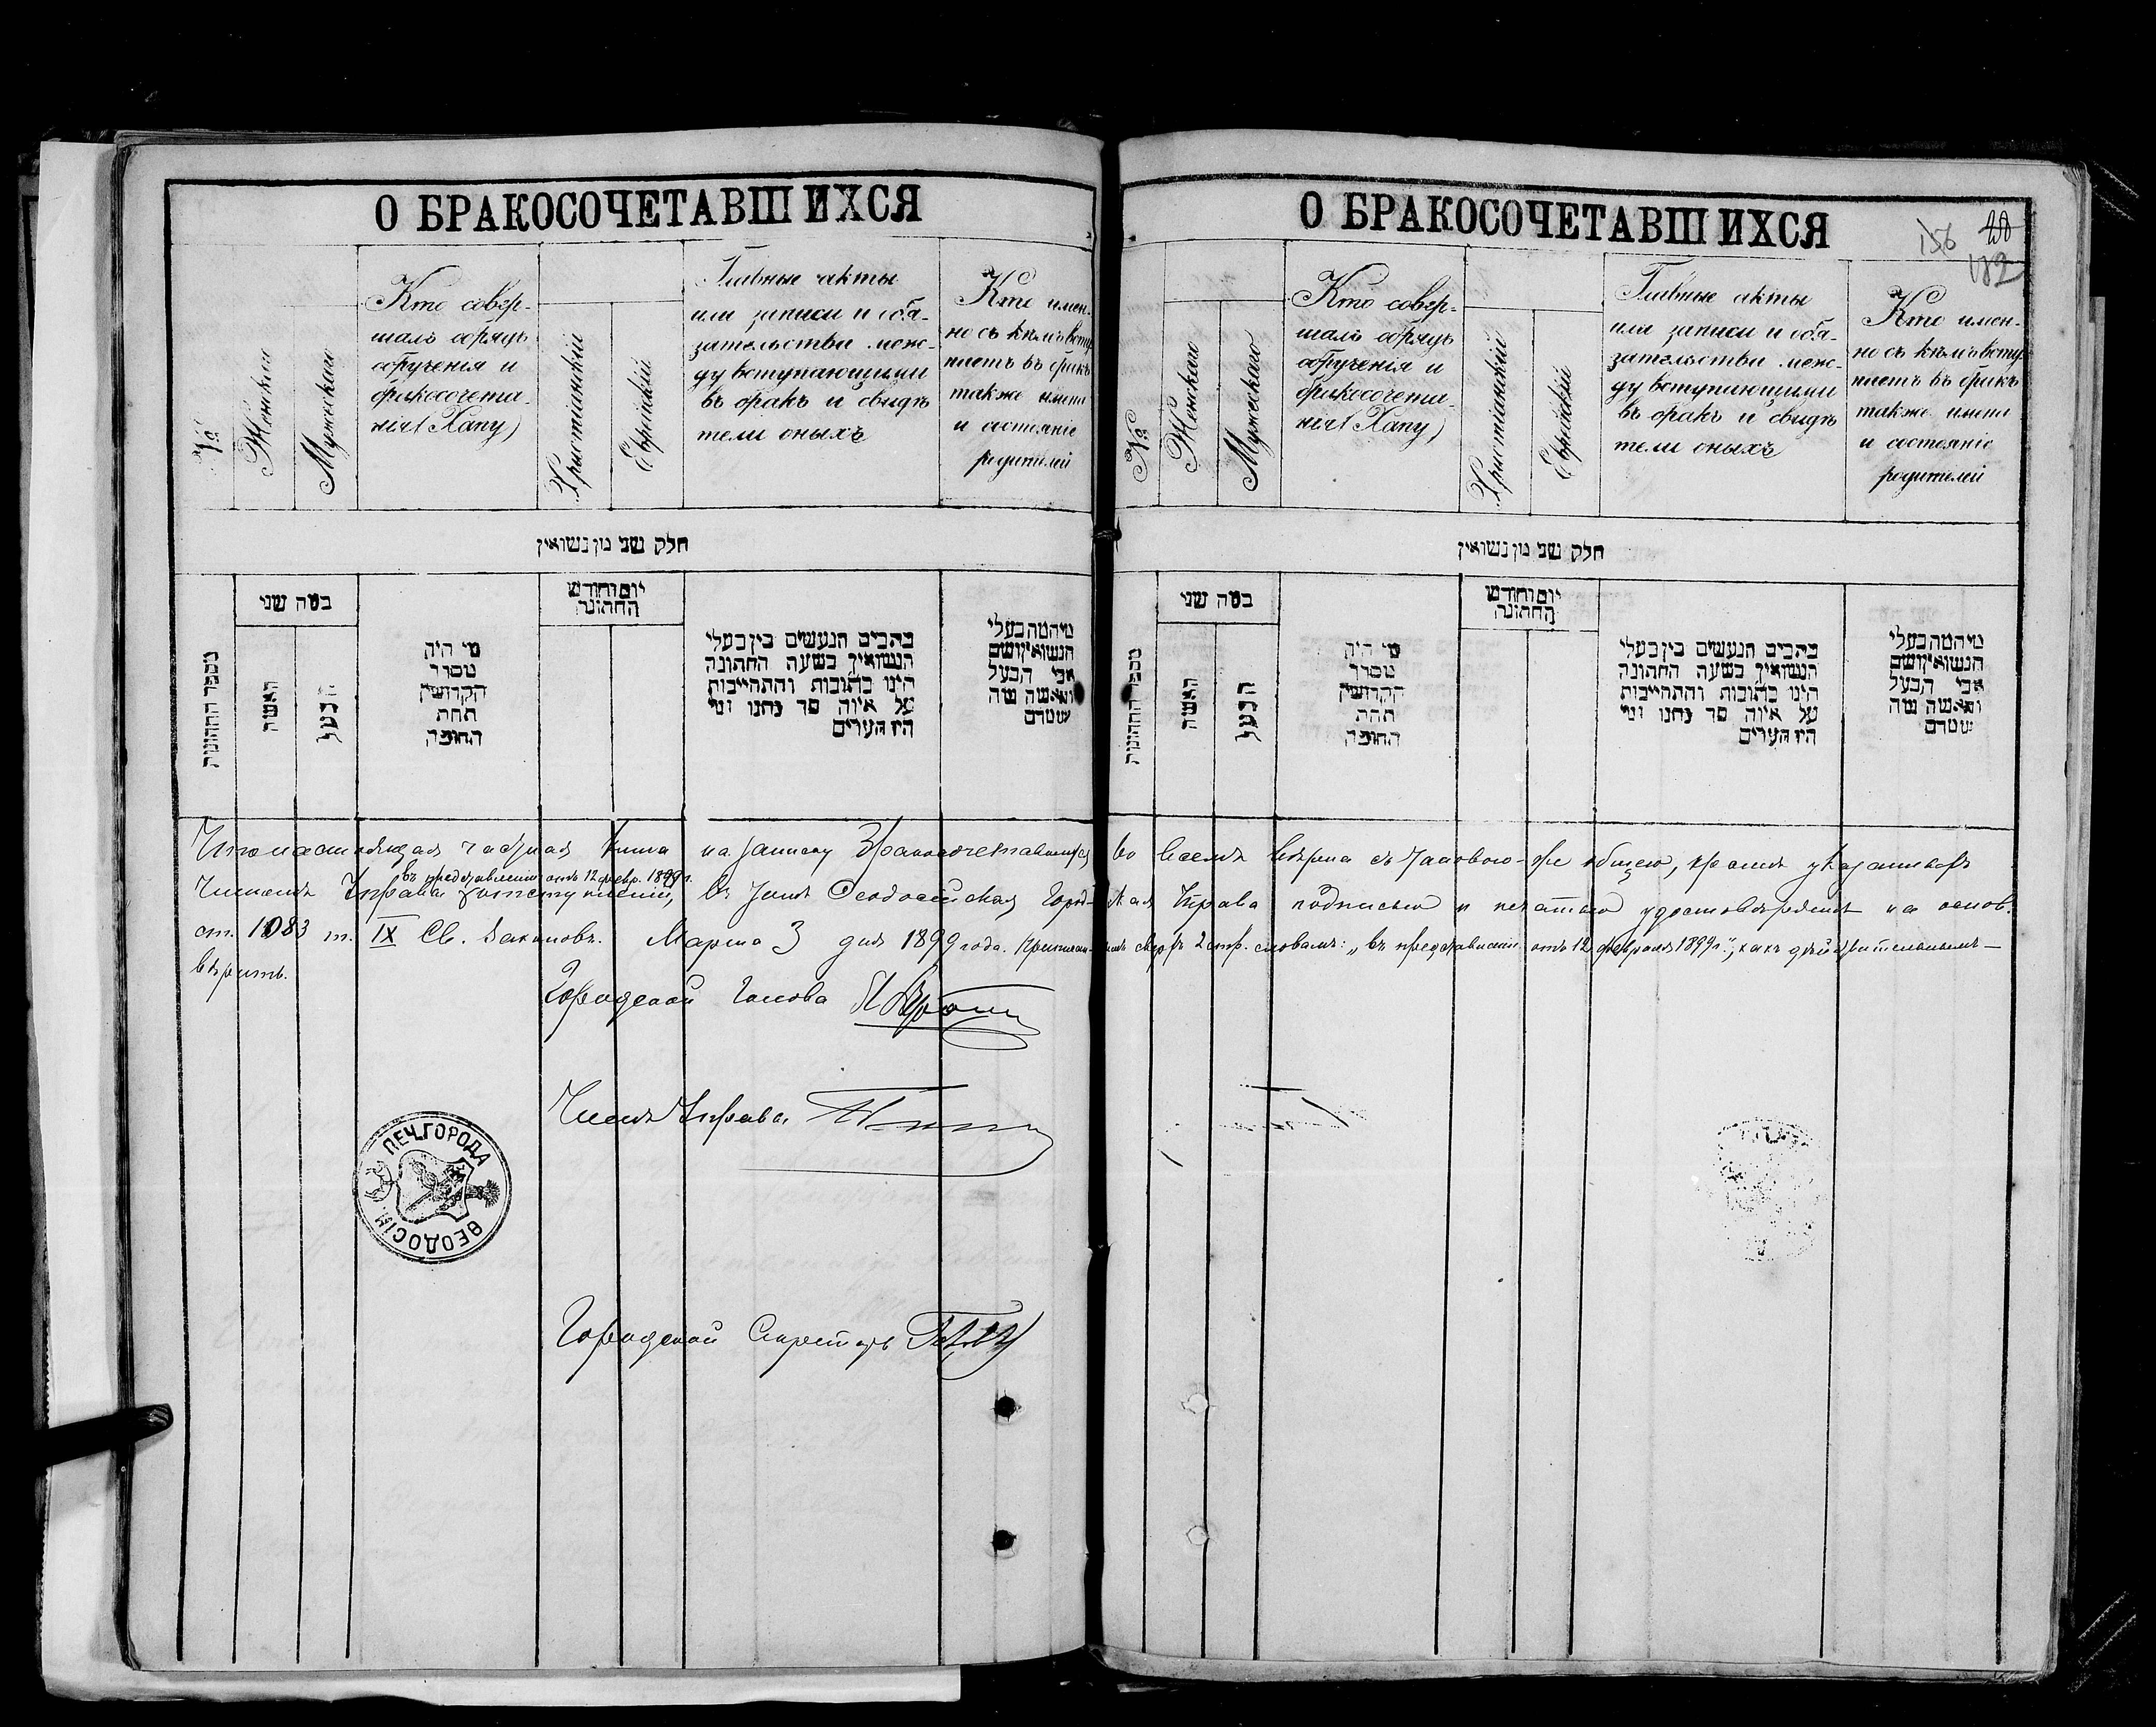 О БРАКОСОЧЕТАВШИХСЯ
№
Женскаго
Мужескаго
Кто совер-
шалъ обрядъ
обрученія и
бракосочета-
нія (Хапу)
Христіанскій
Еврейскій
Главные акты
или записи и обя-
зательства меж-
ду вступающими
въ бракъ и свидѣ
тели оныхъ
Кто имен-
но съ кѣмъ всту
паетъ въ бракъ
также имена
и состояніе
родителей
חלק שני מן נשואין
מספר החתונות
כמה שני
האשה
הבעל
מי היה
מסדר
הקדושין
תחת
החופה
יום וחודש
החתונה
כתבים הנעשים בין בעלי
הנשואין בשעה החתונה
היינו כתובות והתחייבות
על איזה סך נתנו ומי
היו העדים
מי המה בעלי
הנשואין ושם
אבי הבעל
והאשה מה
שמם
О БРАКОСОЧЕТАВШИХСЯ
156
182
№
Женскаго
Мужескаго
Кто совер-
шалъ обрядъ
обрученія и
бракосочета-
нія (Хапу)
Христіанскій
Еврейскій
Главные акты
или записи и обя-
зательства меж-
ду вступающими
въ бракъ и свидѣ
тели оныхъ
Кто имен-
но съ кѣмъ всту
паетъ въ бракъ
также имена
и состояніе
родителей
חלק שני מן נשואין
מספר החתונות
כמה שני
האשה
הבעל
מי היה
מסדר
הקדושין
תחת
החופה
יום וחודש
החתונה
כתבים הנעשים בין בעלי
הנשואין בשעה החתונה
היינו כתובות והתחייבות
על איזה סך נתנו ומי
היו העדים
מי המה בעלי
הנשואין ושם
אבי הבעל
והאשה מה
שמם
Что настоящая книга на записку бракосочетавшихся во всемъ вѣрна съ таковою-же общею, кромѣ указанныхъ
въ представленіи отъ 12 февр. 1899 г.
Членомъ Управы отступленій, въ томъ Ѳеодосійская Город-кая Управа подписью и печатью удостовѣряетъ на основ.
ст. 1083 т. IX Св. Законовъ. Марта 3 дня 1899 года. сверхъ 2 стр. словамъ: „въ представленіи отъ 12 февраля 1899 г.", какъ дѣйствительнымъ —
вѣрить.
Городской Голова
Членъ Управы
ПЕЧ. ГОРОДА
ѲЕОДОСІИ
Городской Секретарь